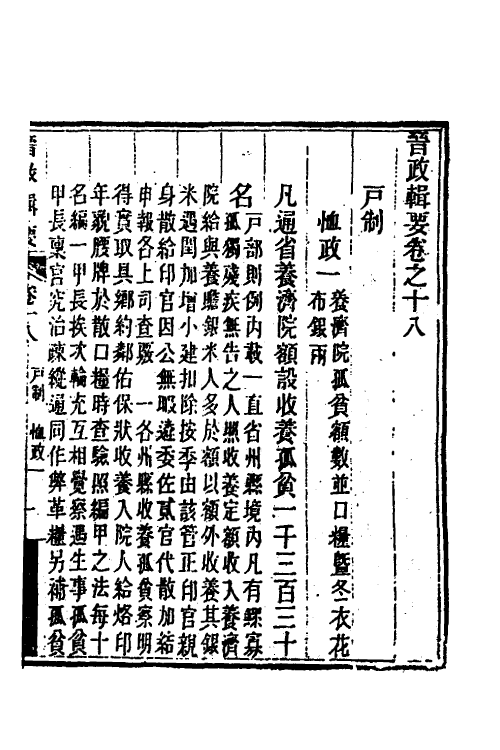 晉政輯要卷之十八
戸制
恤政一 養濟院孤貧額數並口糧曁冬衣花
布銀兩
凡通省養濟院額設收養孤貧一千三百三十
名 戸部則例內載一直省州縣境內凡有鰥寡
孤獨殘疾無告之人照收養定額收入養濟
院給與養贍銀米人多於額以額外收養其銀
米遇閏加增小建扣除按季由該管正印官親
身散給印官因公無暇遴委佐貳官代散加結
申報各上司查覈 一各州縣收養孤貧察明
得實取具鄉約鄰佑保狀收養入院人給烙印
年貌腰牌於散口糧時查驗照編甲之法每十
名編一甲長挨次輪充互相覺察遇生事孤貧
甲長稟官究治疎縱通同作弊革糧另補孤貧
晉政輯要 卷十八 戸制 恤政一 一